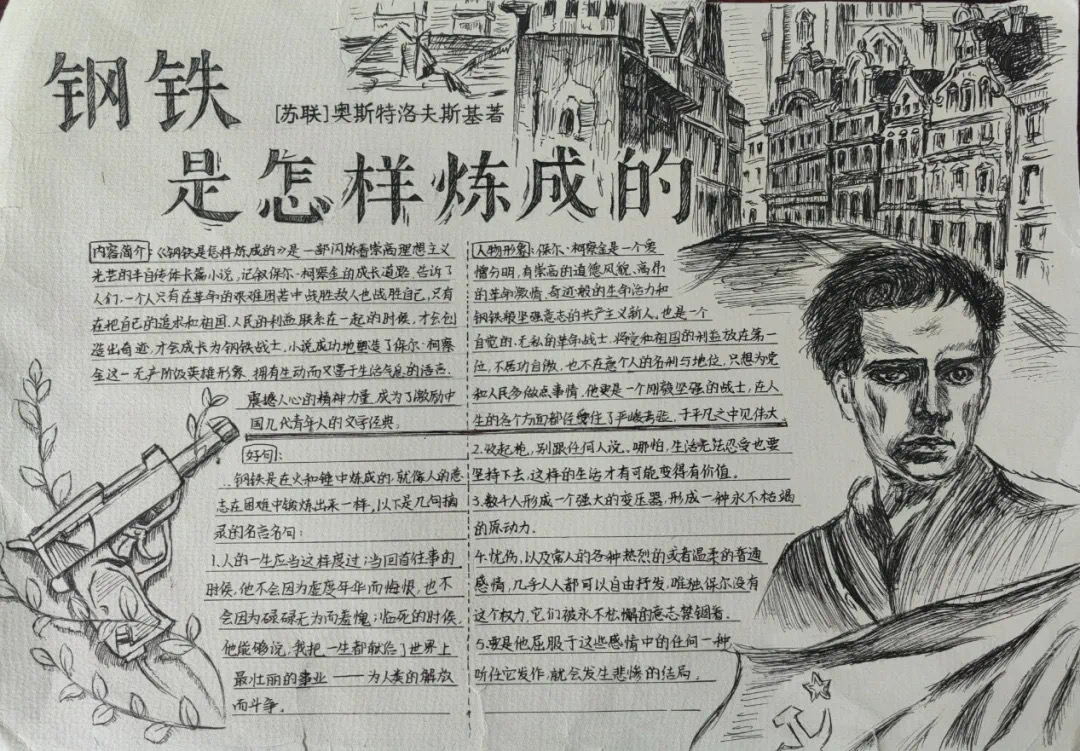 钢铁
[苏联]奥斯特洛夫斯基著
是怎样炼成的
内容简介:《钢铁是怎样炼成的》是一部闪烁着崇高理想主义
光芒的半自传体长篇小说,记叙保尔·柯察金的成长道路 告诉了
人们,一个人只有在革命的艰难困苦中战胜敌人也战胜自己,只有
在把自己的追求和祖国、人民的利益联系在一起的时候,才会创
造出奇迹,才会成长为钢铁战士,小说成功地塑造了保尔·柯察
金这一无产阶级英雄形象,拥有生动而又富于生活气息的语言,
震撼人心的精神力量,成为了激励中
国几代青年人的文学经典。
好句:
...钢铁是在火和锤中炼成的,就像人的意
志在困难中锻炼出来一样,以下是几句摘
录的名言名句:
1.人的一生应当这样度过:当回首往事的
时候,他不会因为虚度年华而悔恨,也不
会因为碌碌无为而羞愧;临死的时候,
他能够说:我把一生都献给了世界上
最壮丽的事业——为人类的解放
而斗争。
人物形象:保尔·柯察金是一个爱
憎分明,有崇高的道德风貌、高伤
的革命激情、奇迹般的生命活力和
钢铁般坚强意志的共产主义新人,也是一个
自觉的、无私的革命战士,将党和祖国的利益放在第一
位,不居功自傲,也不在意个人的名利与地位,只想为党
和人民多做点事情。他更是一个刚毅坚强的战士,在人
生的各个方面都经受住了严峻考验,于平凡之中见伟大。
2.收起枪,别跟任何人说。哪怕,生活无法忍受也要
坚持下去,这样的生活才有可能变得有价值。
3.数千人形成一个强大的变压器,形成一种永不枯竭
的原动力.
4.忧伤,以及常人的各种热烈的或者温柔的普通
感情,几乎人人都可以自由抒发,唯独保尔没有
这个权力,它们被永不松懈的意志禁锢着。
5.要是他屈服于这些感情中的任何一种
听任它发作,就会发生悲惨的结局。